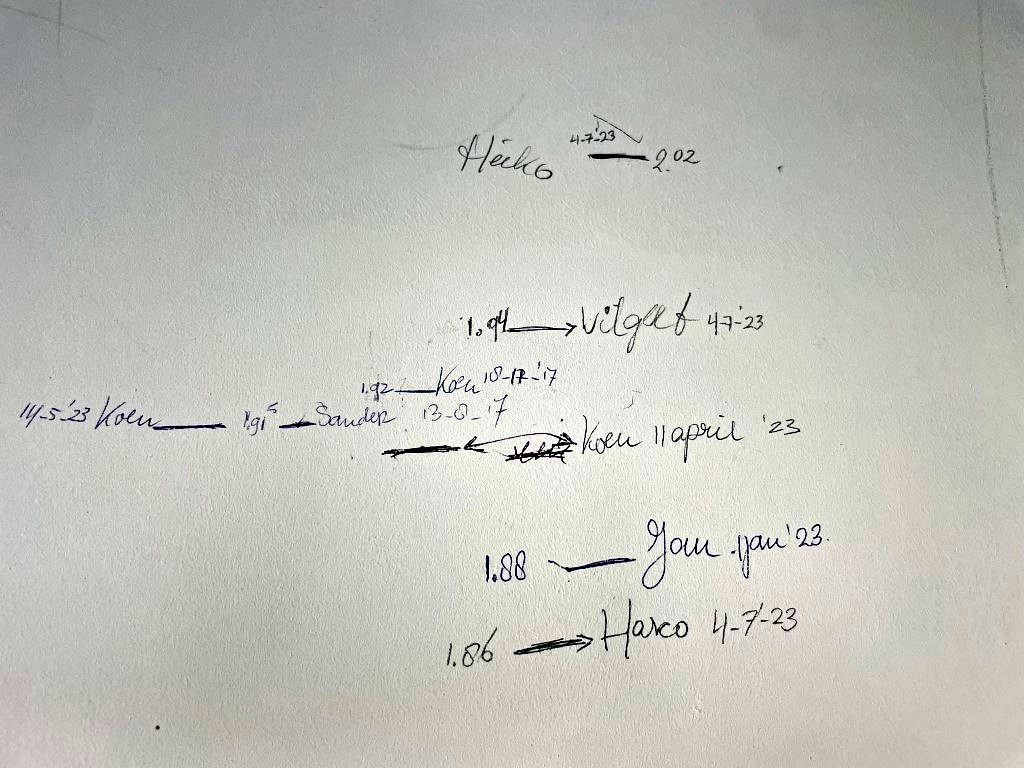 Heiko 4-7-'23 2.02
1.94 4-7-'23
1.92 Koen 18-12-'17
14-5-'23 Koen 1.91⁵ Sander 13-8-'17
Koen 11 april '23
1.88 Jan jan '23
1.86 Harco 4-7-'23